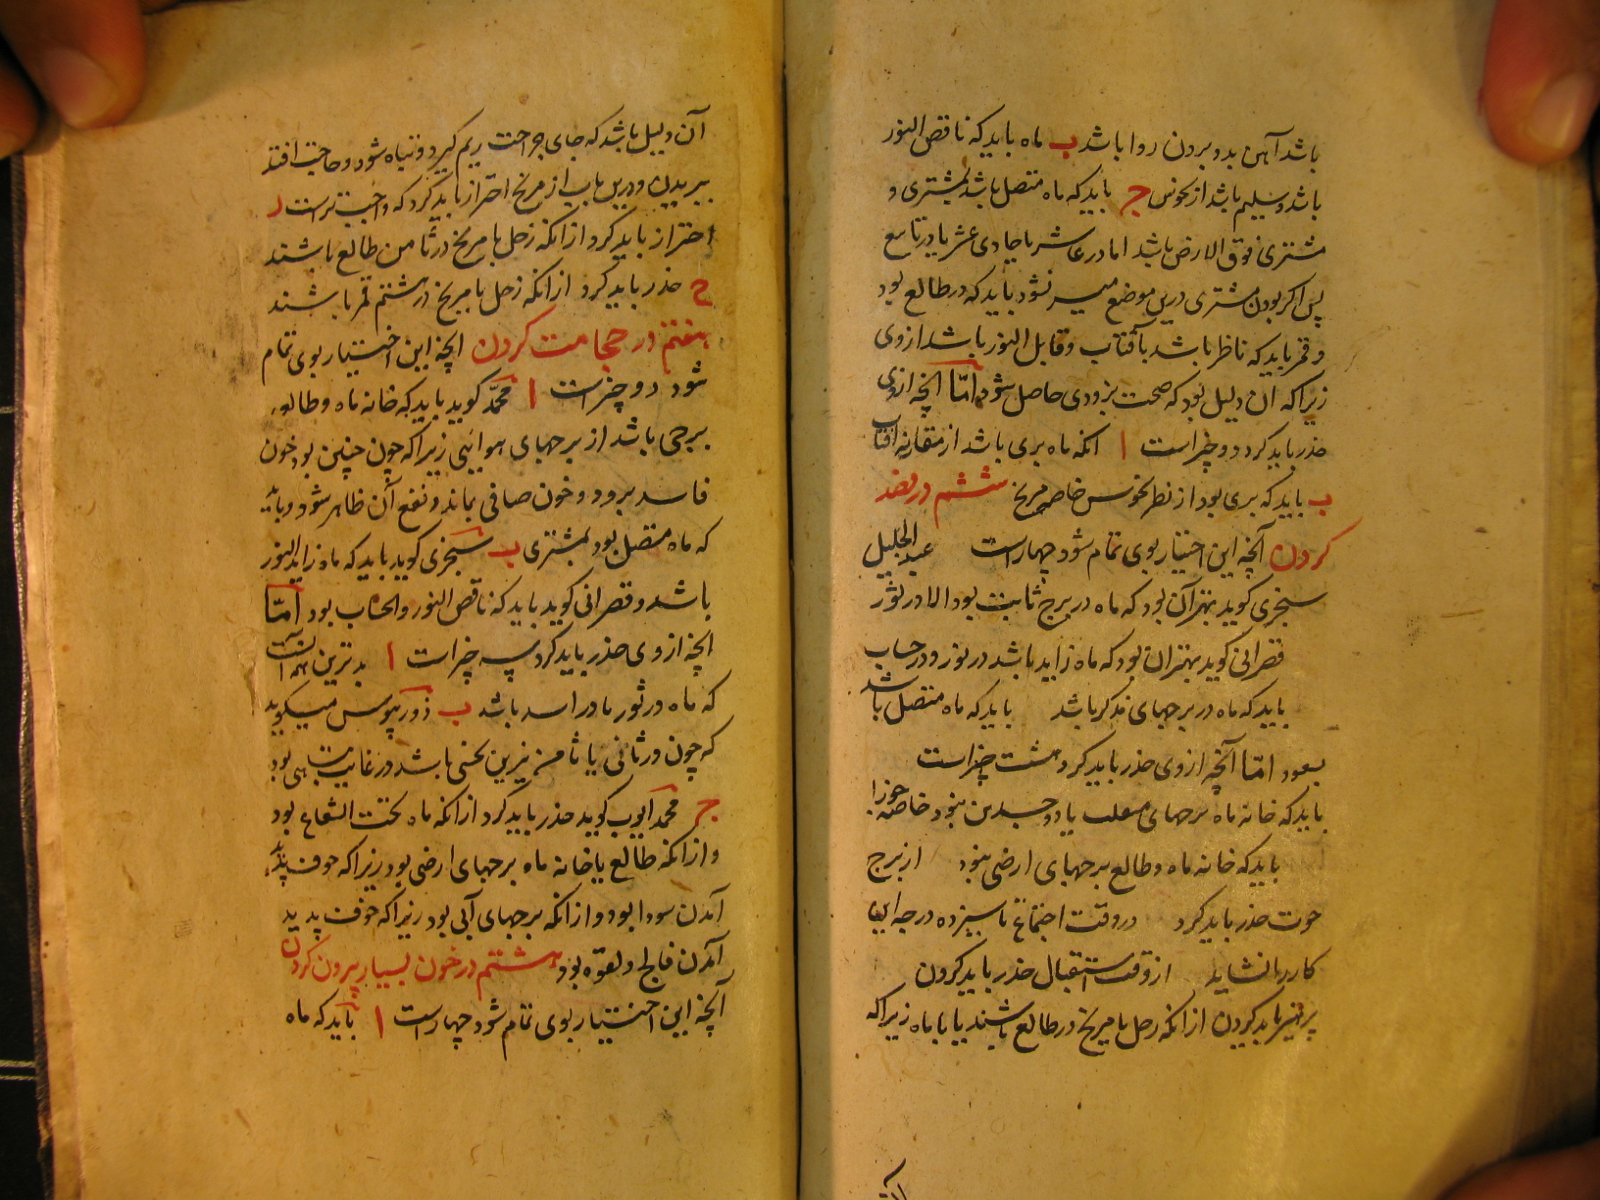 باشد آهن بدو بردن روا باشد ب ماه باید که ناقص النور
باشد و سلیم باشد از نحوس ج باید که ماه متصل باشد بمشتری و
مشتری فوق الارض باشد اما در عاشر یا حادی عشر یا در تاسع
پس اگر بودن مشتری درین موضع میسر نشود باید که در طالع بود
و قمر باید که ناظر باشد بآفتاب و قابل النور باشد از وی
زیرا که ان دلیل بود که صحت بزودی حاصل شود اما انچه از وی
حذر باید کرد دو چیز است ا انکه ماه بری باشد از مقارنه افتاب
ب باید که بری بود از نظر نحوس خاصه مریخ ششم در فصد
کردن آنچه این اختیار بوی تمام شود چهار است عبد الجلیل
سجزی گوید بهتر آن بود که ماه در برج ثابت بود الا در ثور
قصرانی گوید بهتر ان بود که ماه زاید باشد در نور و در حساب
باید که ماه در برجهای مذکر باشد باید که ماه متصل باشد
بسعود اما آنچه از وی حذر باید کرد هشت چیز است
باید که خانه ماه برجهای منقلب یا ذو جسدین نبود خاصه جوزا
باید که خانه ماه و طالع برجهای ارضی نبود از برج
حوت حذر باید کرد در وقت اجتماع تا سیزده درجه این
کار را نشاید از وقت استقبال حذر باید کردن
پرهیز باید کردن از انکه زحل یا مریخ در طالع باشند یا با ماه زیرا که
آن دلیل باشد که جای جراحت ریم گیرد و تباه شود و حاجت افتد
ببریدن و درین باب از مریخ احتراز باید کرد که واجب تر است
احتراز باید کرد از انکه زحل یا مریخ در ثامن طالع باشند
ح حذر باید کرد از انکه زحل یا مریخ در هشتم قمر باشند
هفتم در حجامت کردن انچه این اختیار بوی تمام
شود دو چیز است ا محمد گوید باید که خانه ماه و طالع
برجی باشد از برجهای هوایی زیرا که چون چنین بود خون
فاسد برود و خون صافی بماند و نفع آن ظاهر شود و باید
که ماه متصل بود بمشتری ب سجزی گوید باید که ماه زاید النور
باشد و قصرانی گوید باید که ناقص النور والحساب بود اما
انچه از وی حذر باید کرد سه چیز است ا بدترین همه انست
که ماه در ثور یا در اسد باشد ب ذورثیوس میگوید
که چون در ثانی یا ثامن نیرین نحسی باشد در غایت تباهی بود
ج محمد ایوب گوید حذر باید کرد از انکه ماه تحت الشعاع بود
و از انکه طالع یا خانه ماه برجهای ارضی بود زیرا که خوف پدید
آمدن سودا بود و از انکه برجهای آبی بود زیرا که خوف پدید
آمدن فالج و لقوه بود هشتم در خون بسیار بیرون کردن
آنچه این اختیار بوی تمام شود چهار است ا باید که ماه